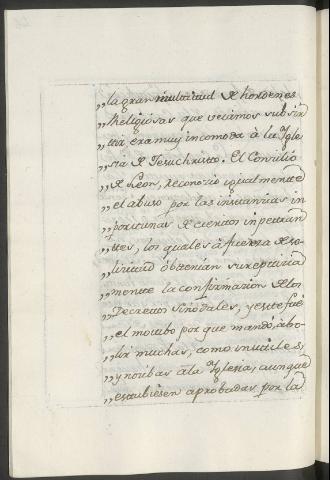 „la gran multitud de hordenes
„Religiosas que veiamos subsis
„tir era muy incomoda à la Ygle
„sia de Jesuchristo. El Consilio
„de Leon, reconozio igualmente
„el abuso por las instanzias in
„portunas de ciertos inpetran
„tes, los quales à fuerza de so
„lizitud obtenian surepticia
„mente la confirmazion de los
„Decretos Sinodales, y este fue
„el motibo por que mandó abo
„lir muchas, como inutiles,
„y nozibas à la Yglesia, aunque
„estubiesen aprobadas por la